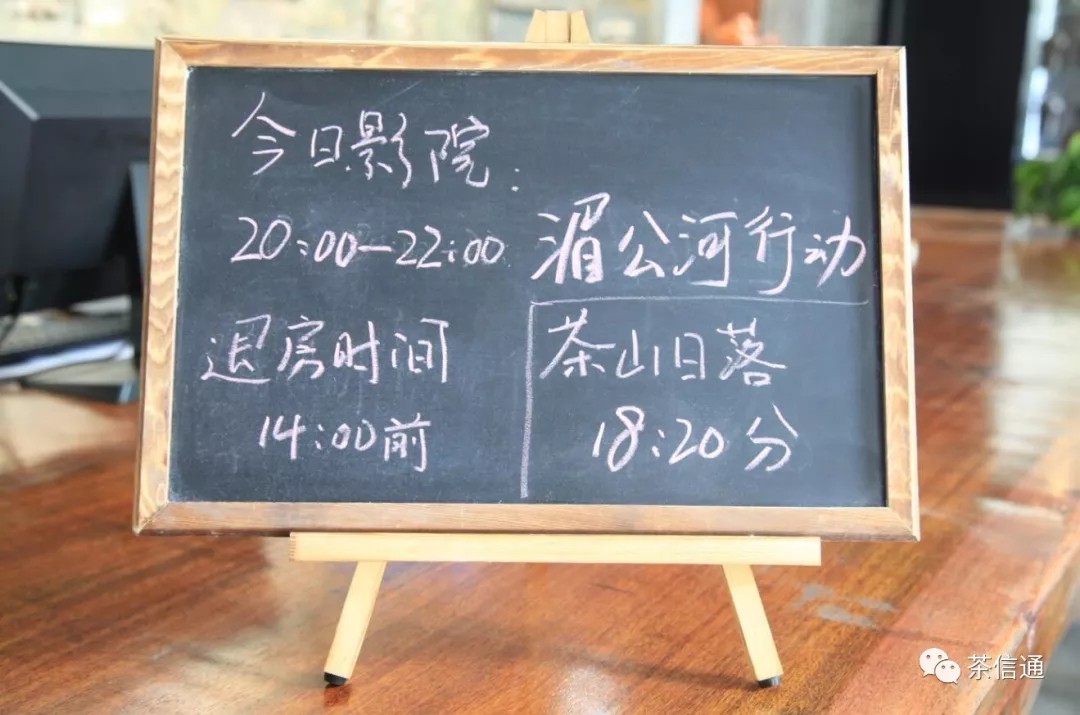 今日影院：
20:00—22:00 湄公河行动
退房时间
14:00前
茶山日落
18:20分
茶信通